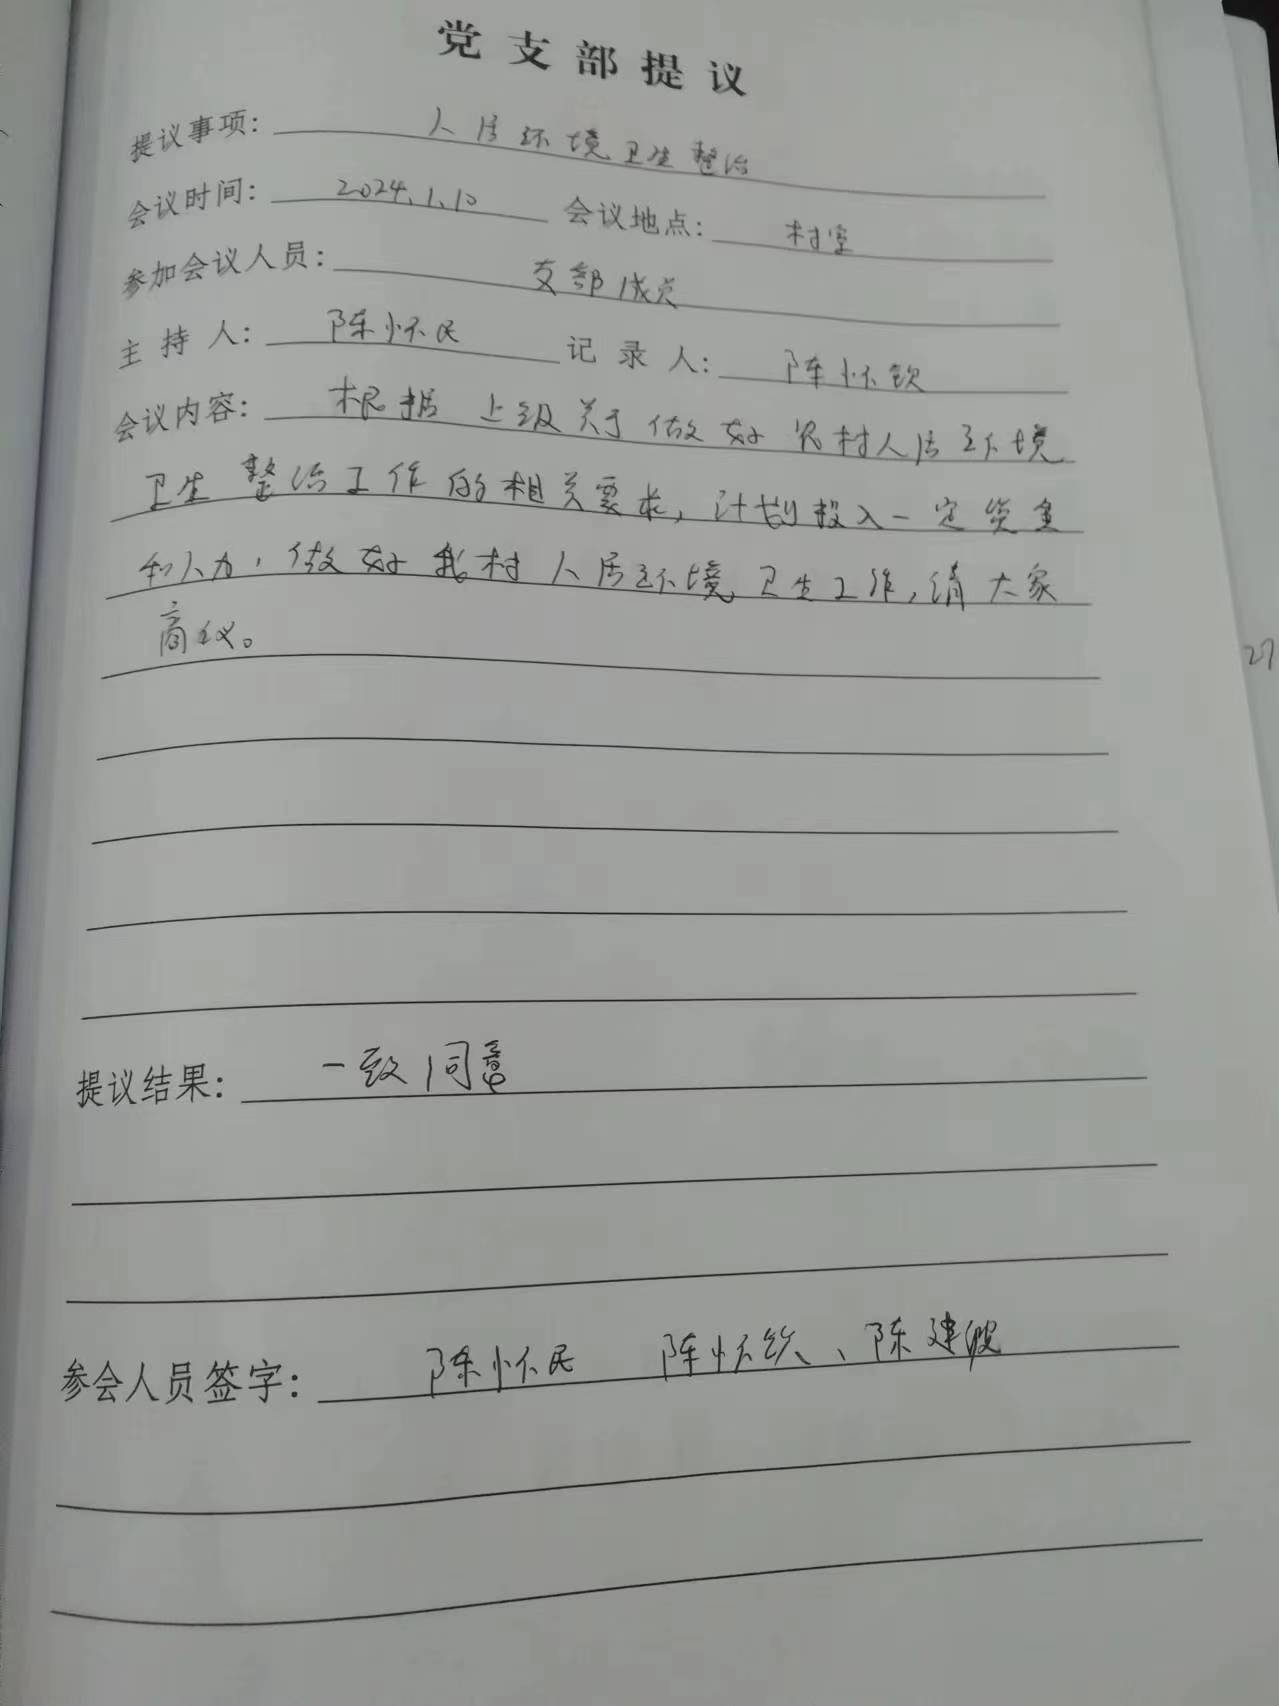 党支部提议
提议事项: 人居环境卫生整治
会议时间: 2024.1.10 会议地点: 村室
参加会议人员: 支部成员
主持人: 陈怀民 记录人: 陈怀钦
会议内容: 根据上级关于做好农村人居环境
卫生整治工作的相关要求,计划投入一定资金
和人力,做好我村人居环境卫生工作,请大家
商议。
27
提议结果: 一致同意
参会人员签字: 陈怀民 陈怀钦、陈建波